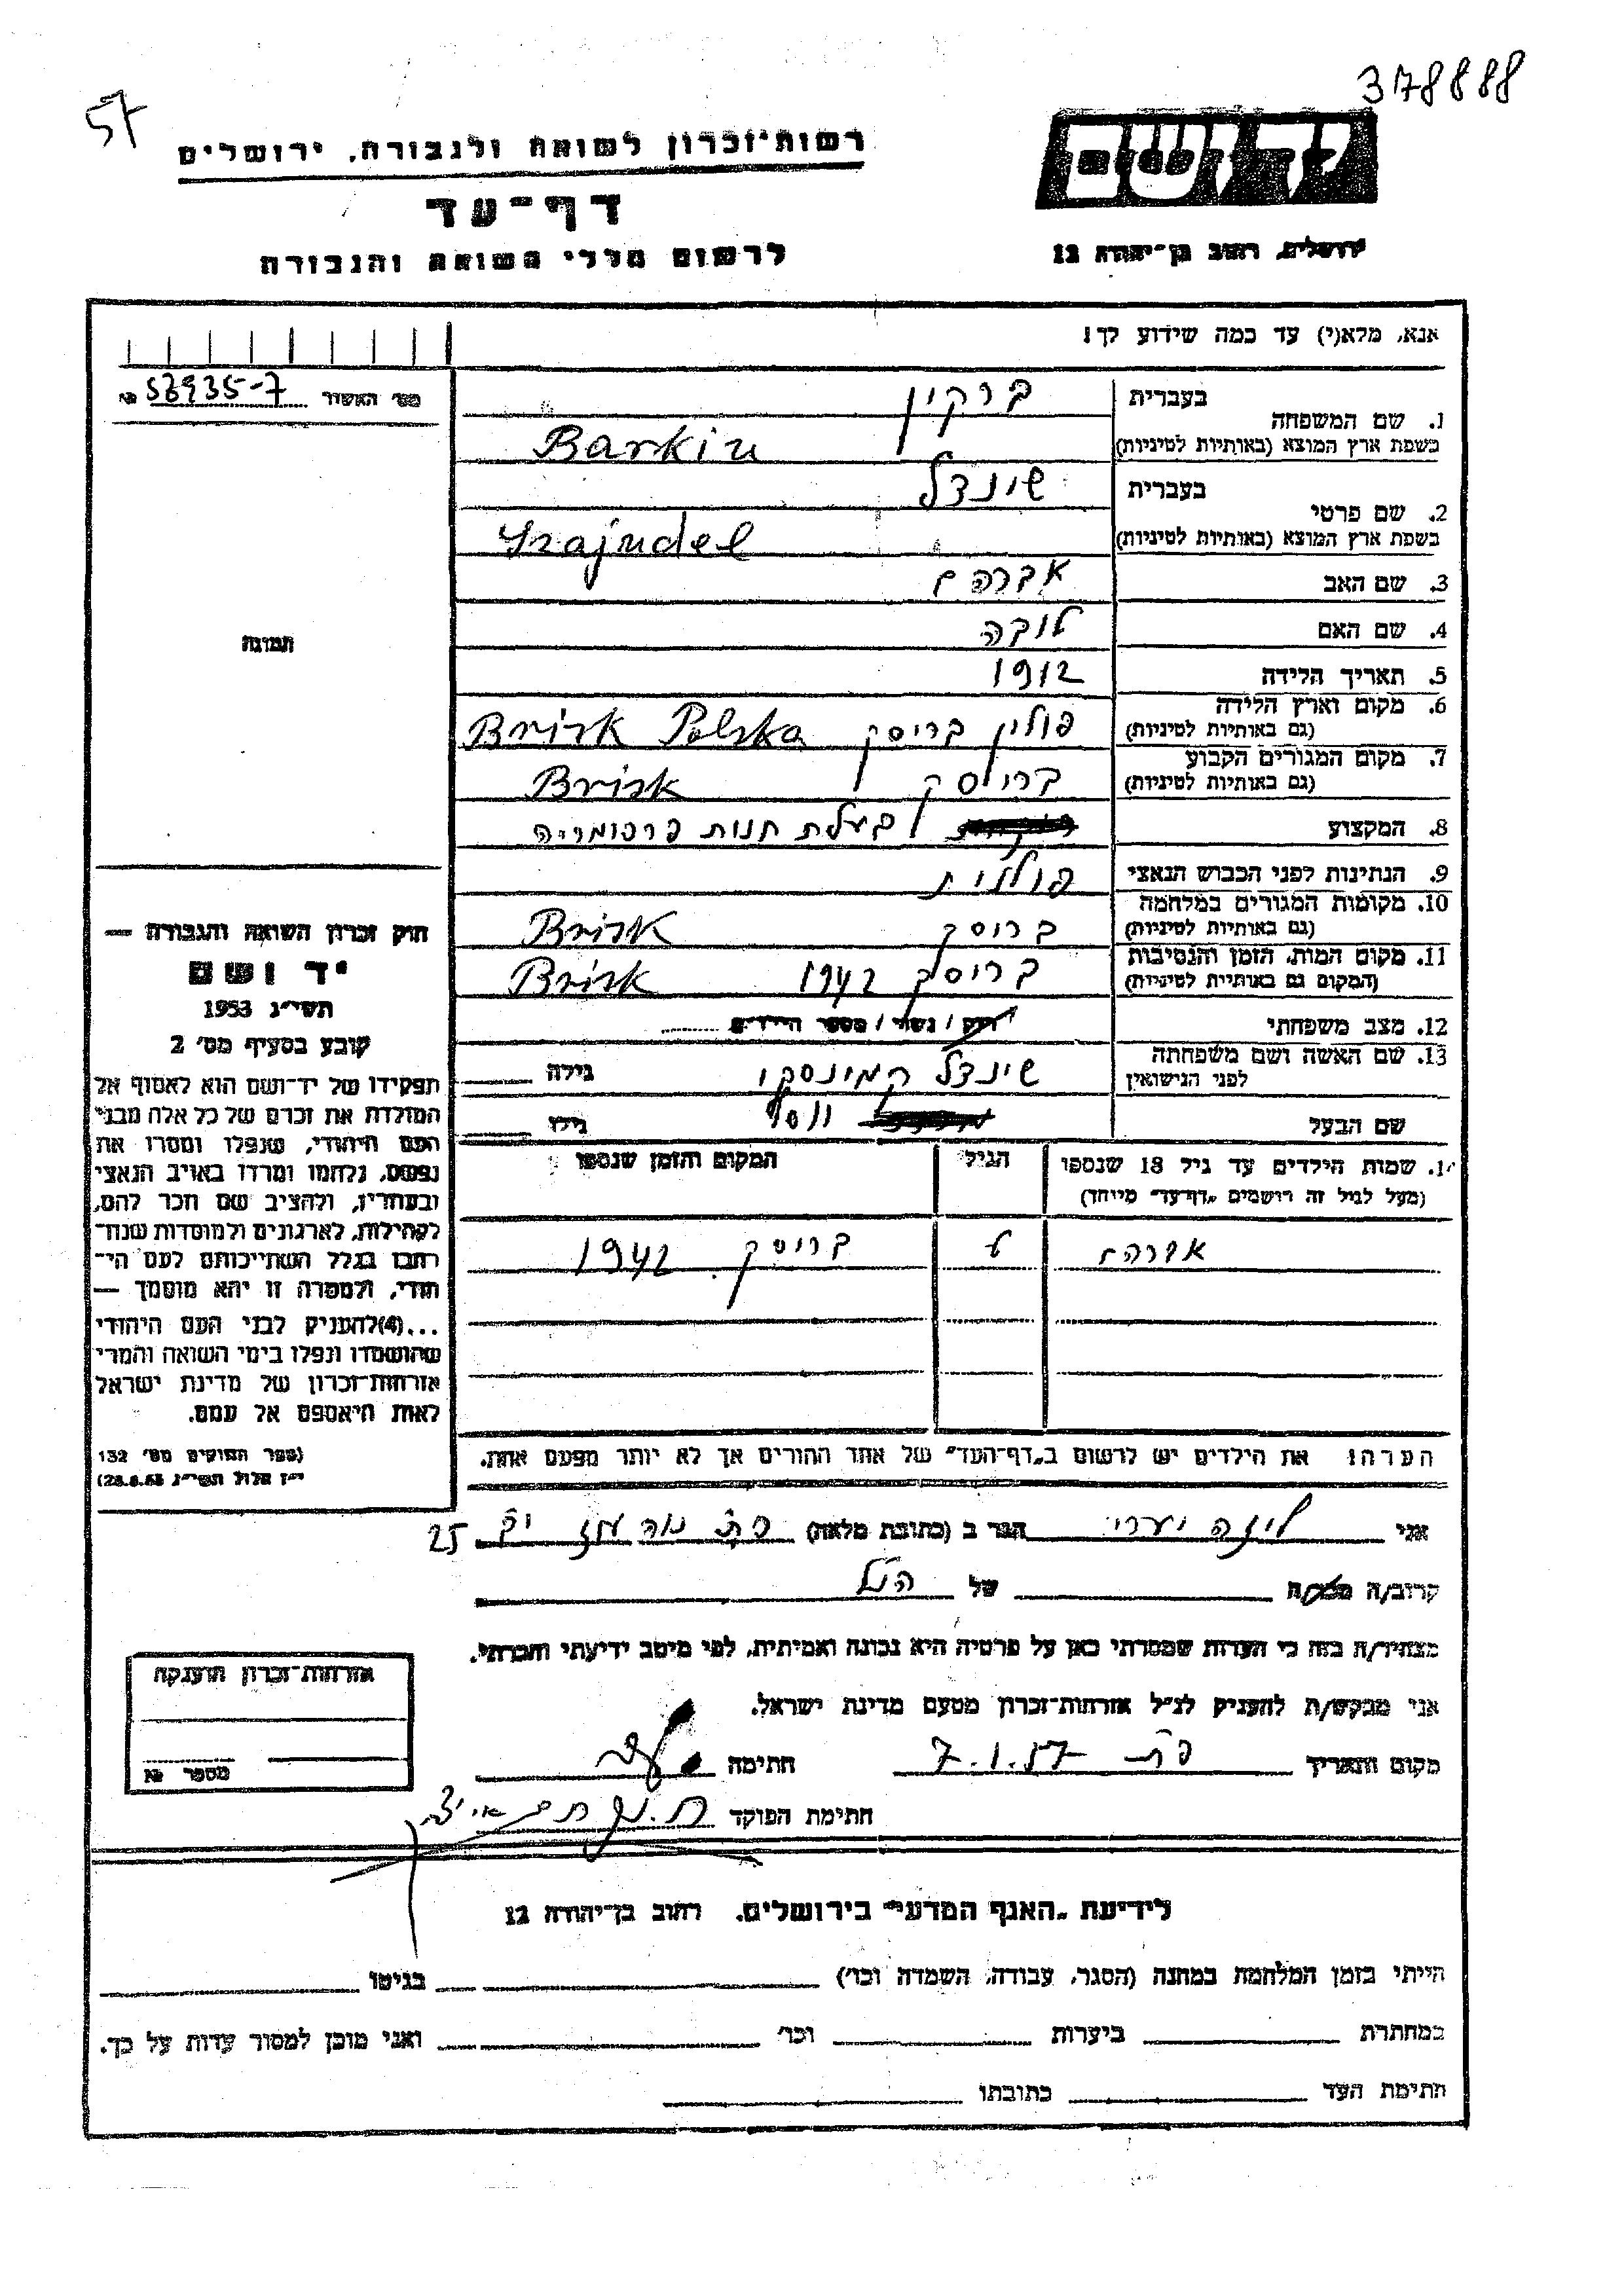 378888
57
יד ושם
רשות־זכרון לשואה ולגבורה, ירושלים
דף־עד
לרשום חללי השואה והגבורה
ירושלים, רחוב בן־יהודה 12
אנא, מלא(י) עד כמה שידוע לך!
מס׳ האשור № 53935-7
תמונה
1. שם המשפחה
בעברית ברקין
בשפת ארץ המוצא (באותיות לטיניות) Barkin
2. שם פרטי
בעברית שינדל
בשפת ארץ המוצא (באותיות לטיניות) Szajndel
3. שם האב אברהם
4. שם האם
5. תאריך הלידה 1912
6. מקום וארץ הלידה פולין בריסק Brisk Polska
(גם באותיות לטיניות)
7. מקום המגורים הקבוע בריסק Brisk
(גם באותיות לטיניות)
8. המקצוע בעלת חנות פרפומריה
9. הנתינות לפני הכבוש הנאצי פולנית
10. מקומות המגורים במלחמה בריסק Brisk
(גם באותיות לטיניות)
11. מקום המות, הזמן והנסיבות בריסק 1942 Brisk
(המקום גם באותיות לטיניות)
12. מצב משפחתי רווק / נשוי / מספר הילדים
13. שם האשה ושם משפחתה שינדל קמינסקי גילה
לפני הנישואין
שם הבעל יוסף גילו
14. שמות הילדים עד גיל 18 שנספו הגיל המקום והזמן שנספו
(מעל לגיל זה רושמים „דף־עד״ מיוחד)
אברהם בריסק 1942
הערה: את הילדים יש לרשום ב„דף־העד״ של אחד ההורים אך לא יותר מפעם אחת.
חוק זכרון השואה והגבורה —
יד ושם
תשי״ג 1953
קובע בסעיף מס׳ 2
תפקידו של יד־ושם הוא לאסוף אל
המולדת את זכרם של כל אלה מבני
העם היהודי, שנפלו ומסרו את
נפשם, נלחמו ומרדו באויב הנאצי
ובעוזריו, ולהציב שם וזכר להם,
לקהילות, לארגונים ולמוסדות שנח־
רבו בגלל השתייכותם לעם הי־
הודי, ולמטרה זו יהא מוסמך —
...(4) להעניק לבני העם היהודי
שהושמדו ונפלו בימי השואה והמרי
אזרחות־זכרון של מדינת ישראל
לאות היאספם אל עמם.
(ספר החוקים מס׳ 132
י״ז אלול תשי״ג 28.8.53)
אני ליזה יערי הגר ב (כתובת מלאה) 25
קרוב/ה מכר/ה של הנ״ל
מצהיר/ה בזה כי העדות שמסרתי כאן על פרטיה היא נכונה ואמיתית, לפי מיטב ידיעתי והכרתי.
אני מבקש/ת להעניק לנ״ל אזרחות־זכרון מטעם מדינת ישראל.
מקום ותאריך 7.1.57 חתימה
חתימת הפוקד
אזרחות־זכרון הוענקה
מספר №
לידיעת „האגף המדעי״ בירושלים, רחוב בן־יהודה 12
הייתי בזמן המלחמה במחנה (הסגר, עבודה, השמדה וכו׳) בגיטו
במחתרת ביערות וכו׳ ואני מוכן למסור עדות על כך.
חתימת העד כתובתו